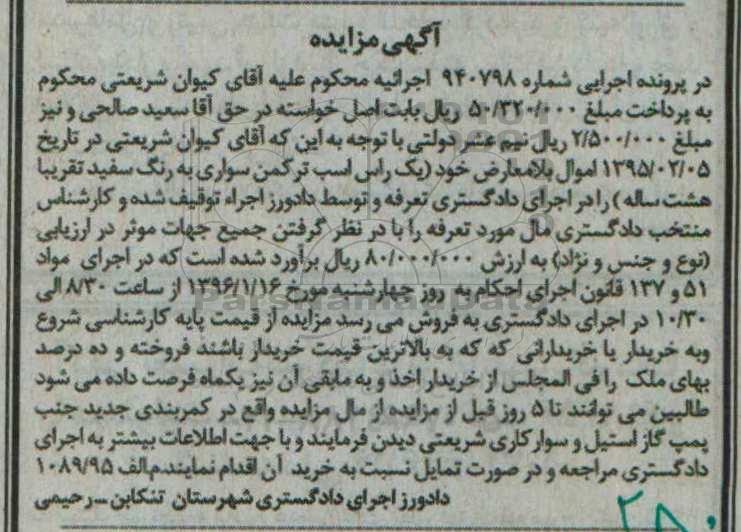 آگهی مزایده
در پرونده اجرایی شماره ۹۴۰۷۹۸ اجرائیه محکوم علیه آقای کیوان شریعتی محکوم
به پرداخت مبلغ ۵۰/۳۲۰/۰۰۰ ریال بابت اصل خواسته در حق آقا سعید صالحی و نیز
مبلغ ۲/۵۰۰/۰۰۰ ریال نیم عشر دولتی با توجه به این که آقای کیوان شریعتی در تاریخ
۱۳۹۵/۰۲/۰۵ اموال بلامعارض خود (یک راس اسب ترکمن سواری به رنگ سفید تقریبا
هشت ساله) را در اجرای دادگستری تعرفه و توسط دادورز اجراء توقیف شده و کارشناس
منتخب دادگستری مال مورد تعرفه را با در نظر گرفتن جمیع جهات موثر در ارزیابی
(نوع و جنس و نژاد) به ارزش ۸۰/۰۰۰/۰۰۰ ریال برآورد شده است که در اجرای مواد
۵۱ و ۱۳۷ قانون اجرای احکام به روز چهارشنبه مورخ ۱۳۹۶/۱/۱۶ از ساعت ۸/۳۰ الی
۱۰/۳۰ در اجرای دادگستری به فروش می رسد مزایده از قیمت پایه کارشناسی شروع
وبه خریدار یا خریدارانی که که به بالاترین قیمت خریدار باشند فروخته و ده درصد
بهای ملک را فی المجلس از خریدار اخذ و به مابقی آن نیز یکماه فرصت داده می شود
طالبین می توانند تا ۵ روز قبل از مزایده از مال مزایده واقع در کمربندی جدید جنب
پمپ گاز استیل و سوار کاری شریعتی دیدن فرمایند و با جهت اطلاعات بیشتر به اجرای
دادگستری مراجعه و در صورت تمایل نسبت به خرید آن اقدام نمایند.م‌الف ۱۰۸۹/۹۵
دادورز اجرای دادگستری شهرستان تنکابن ــ رحیمی
۲۸۰
ParsNamadData